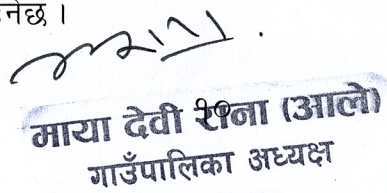 नेछ ।
माया देवी राना (आले)
गाउँपालिका अध्यक्ष